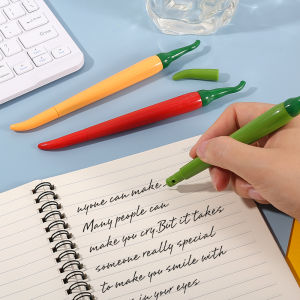 nyone can make
Many people can
make you cry.But it takes
someone really special
to make you smile with
in your eyes